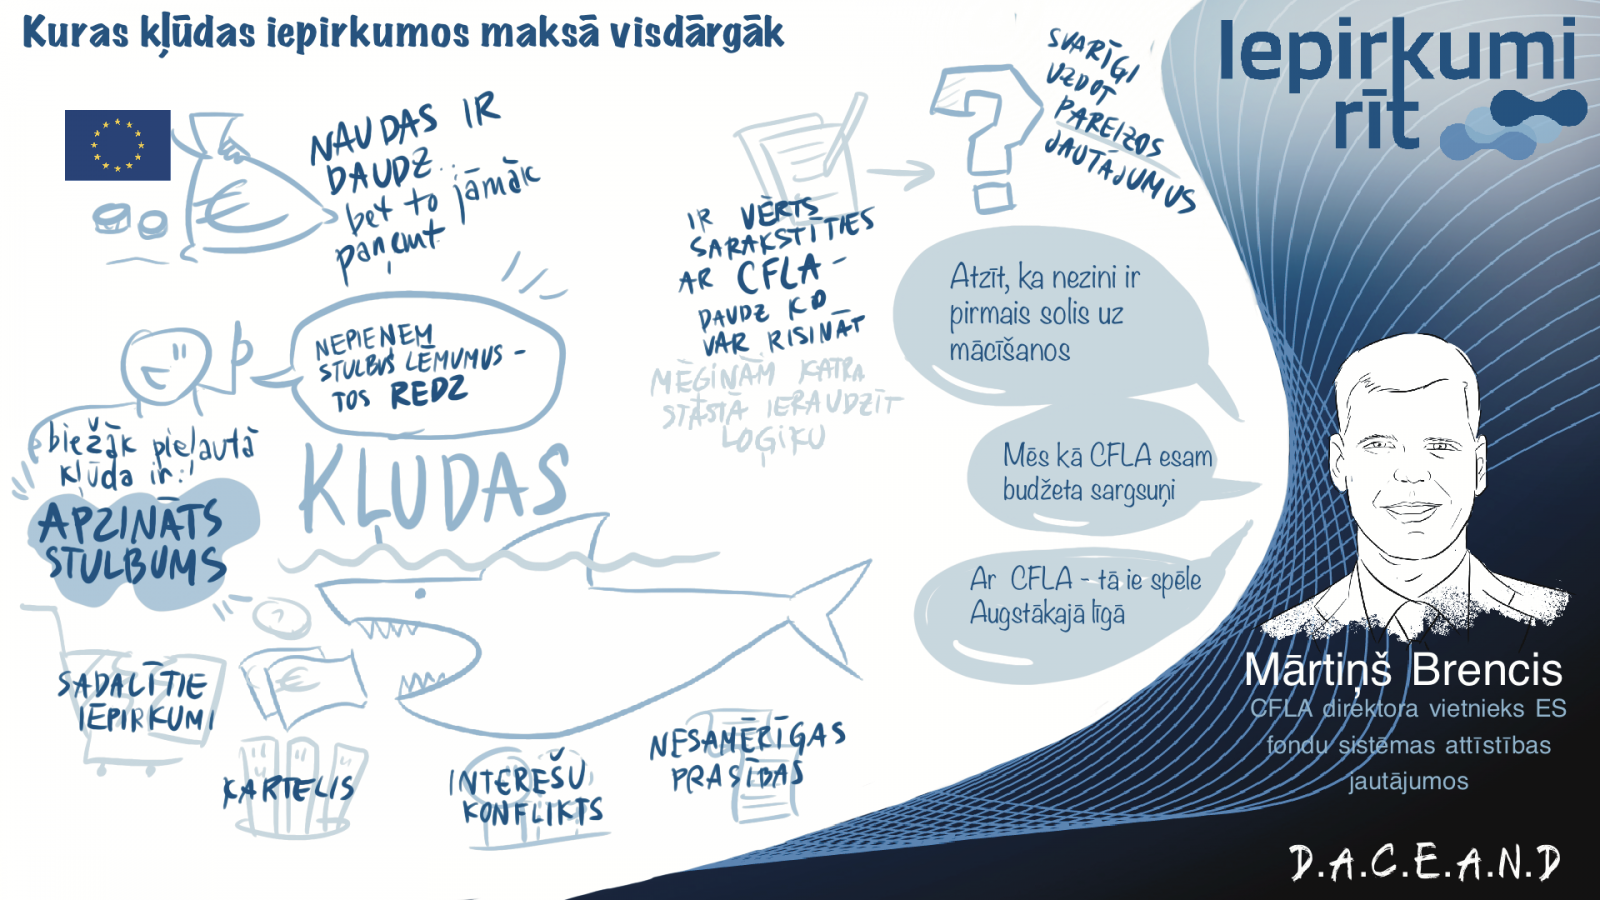 Kuras kļūdas iepirkumos maksā visdārgāk
NAUDAS IR
DAUDZ
bet to jāmāk
paņemt
NEPIEŅEM
STULBUS LĒMUMUS -
TOS REDZ
biežāk pieļautā
kļūda ir:!
APZINĀTS
STULBUMS
KĻUDAS
SADALĪTIE
IEPIRKUMI
KARTELIS
INTEREŠU
KONFLIKTS
NESAMĒRĪGAS
PRASĪBAS
IR VĒRTS
SARAKSTĪTIES
AR CFLA -
DAUDZ KO
VAR RISINĀT
MĒĢINĀM KATRA
STĀSTĀ IERAUDZĪT
LOĢIKU
SVARĪGI
UZDOT
PAREIZOS
JAUTĀJUMUS
Atzīt, ka nezini ir
pirmais solis uz
mācīšanos
Mēs kā CFLA esam
budžeta sargsuņi
Ar CFLA - tā ie spēle
Augstākajā līgā
Iepirkumi
rīt
Mārtiņš Brencis
CFLA direktora vietnieks ES
fondu sistēmas attīstības
jautājumos
D.A.C.E.A.N.D